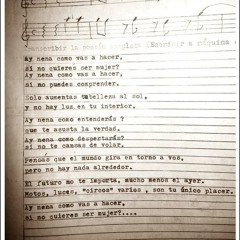 Ay nena como vas a hacer,
si no quieres ser mujer?
Ay nena como vas a hacer,
si no puedes comprender.
Solo aumentas tubelleza al sol,
y no hay luz en tu interior.
Ay nena como entenderás ?
que te asusta la verdad.
Ay nena como despertarás?
si no te cansas de volar.
Pensás que el mundo gira en torno a vos,
pero no hay nada alrededor.
El futuro no te importa, mucho menos el ayer.
Motos, luces, "circos" varios , son tu único placer.
Ay nena como vas a hacer,
si no quieres ser mujer?....